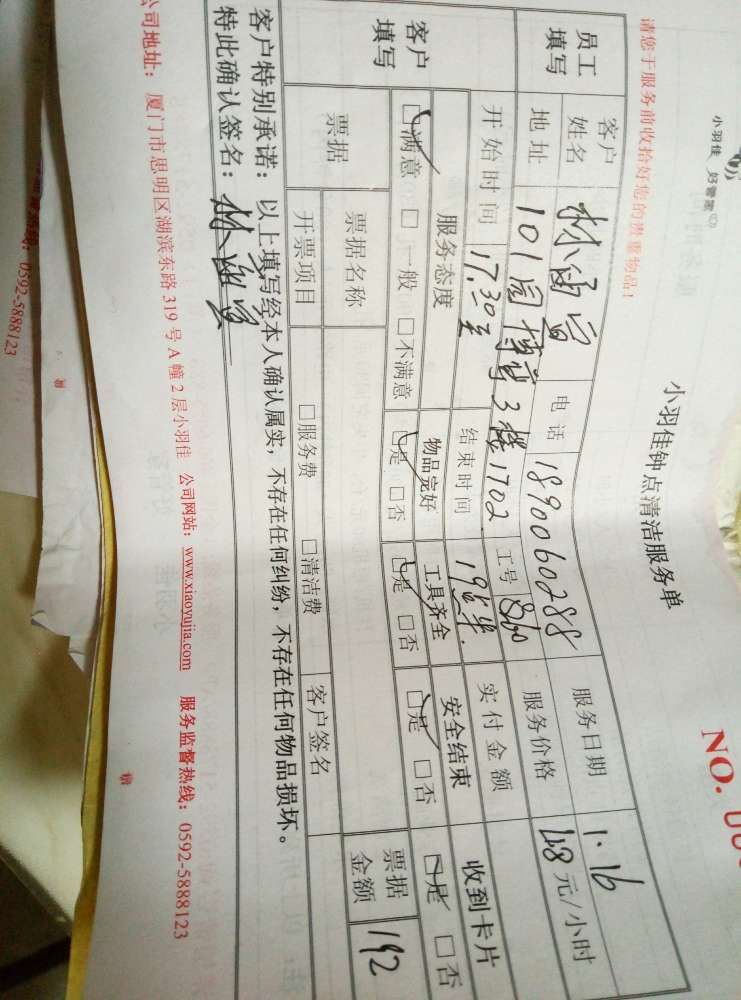 小羽佳 好管家
小羽佳钟点清洁服务单
NO.
请您于服务前收拾好您的贵重物品!
员工填写 客户姓名 电话 18900060288 服务日期 1.16
地址 101 3楼1702 工号 860 服务价格 48 元/小时
开始时间 17.30 结束时间 实付金额
客户填写 服务态度 物品完好 工具齐全 安全结束 收到卡片
□满意 □一般 □不满意 □是 □否 □是 □否 □是 □否 □是 □否
票据 票据名称 票据金额 192
开票项目 □服务费 □清洁费 客户签名
客户特别承诺:以上填写经本人确认属实,不存在任何纠纷,不存在任何物品损坏。
特此确认签名:
公司地址:厦门市思明区湖滨东路 319 号 A 幢 2 层小羽佳 公司网站:www.xiaoyujia.com 服务监督热线:0592-5888123
热线:0592-5888123